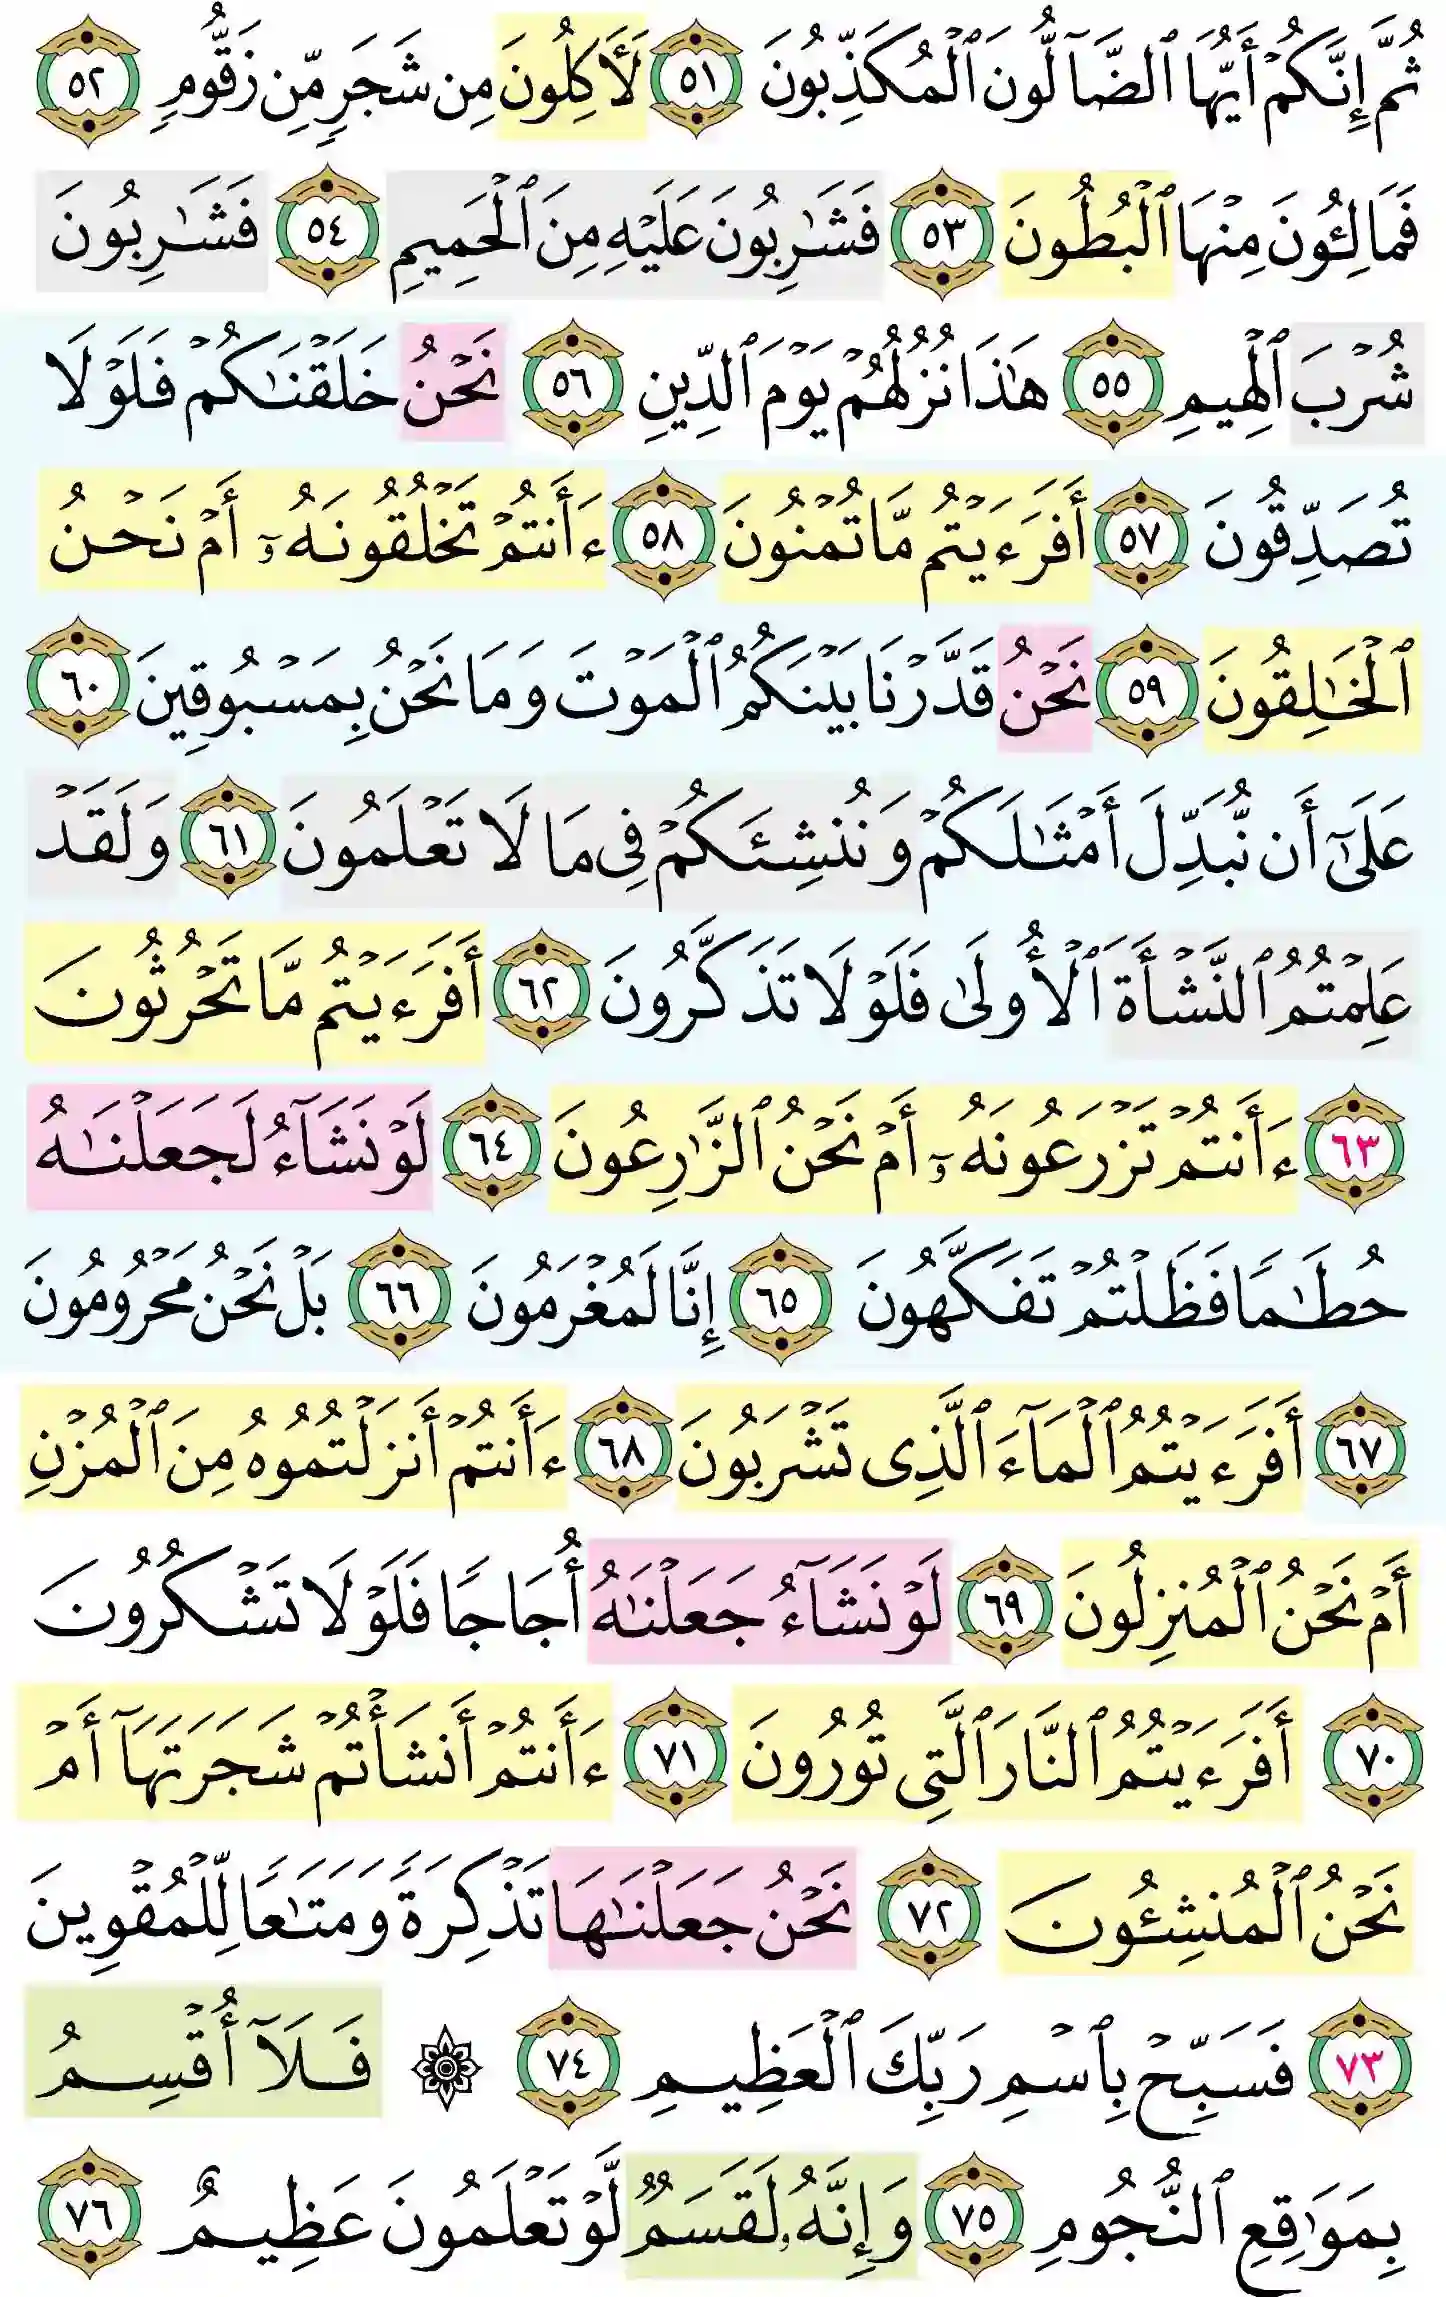 ثُمَّ إِنَّكُمْ أَيُّهَا ٱلضَّآلُّونَ ٱلْمُكَذِّبُونَ ٥١ لَأَكِلُونَ مِن شَجَرٍ مِّن زَقُّومٍ ٥٢
فَمَالِـُٔونَ مِنْهَا ٱلْبُطُونَ ٥٣ فَشَـٰرِبُونَ عَلَيْهِ مِنَ ٱلْحَمِيمِ ٥٤ فَشَـٰرِبُونَ
شُرْبَ ٱلْهِيمِ ٥٥ هَـٰذَا نُزُلُهُمْ يَوْمَ ٱلدِّينِ ٥٦ نَحْنُ خَلَقْنَـٰكُمْ فَلَوْلَا
تُصَدِّقُونَ ٥٧ أَفَرَءَيْتُم مَّا تُمْنُونَ ٥٨ ءَأَنتُمْ تَخْلُقُونَهُۥٓ أَمْ نَحْنُ
ٱلْخَـٰلِقُونَ ٥٩ نَحْنُ قَدَّرْنَا بَيْنَكُمُ ٱلْمَوْتَ وَمَا نَحْنُ بِمَسْبُوقِينَ ٦٠
عَلَىٰٓ أَن نُّبَدِّلَ أَمْثَـٰلَكُمْ وَنُنشِئَكُمْ فِى مَا لَا تَعْلَمُونَ ٦١ وَلَقَدْ
عَلِمْتُمُ ٱلنَّشْأَةَ ٱلْأُولَىٰ فَلَوْلَا تَذَكَّرُونَ ٦٢ أَفَرَءَيْتُم مَّا تَحْرُثُونَ
٦٣ ءَأَنتُمْ تَزْرَعُونَهُۥٓ أَمْ نَحْنُ ٱلزَّٰرِعُونَ ٦٤ لَوْ نَشَآءُ لَجَعَلْنَـٰهُ
حُطَـٰمًا فَظَلْتُمْ تَفَكَّهُونَ ٦٥ إِنَّا لَمُغْرَمُونَ ٦٦ بَلْ نَحْنُ مَحْرُومُونَ
٦٧ أَفَرَءَيْتُمُ ٱلْمَآءَ ٱلَّذِى تَشْرَبُونَ ٦٨ ءَأَنتُمْ أَنزَلْتُمُوهُ مِنَ ٱلْمُزْنِ
أَمْ نَحْنُ ٱلْمُنزِلُونَ ٦٩ لَوْ نَشَآءُ جَعَلْنَـٰهُ أُجَاجًا فَلَوْلَا تَشْكُرُونَ
٧٠ أَفَرَءَيْتُمُ ٱلنَّارَ ٱلَّتِى تُورُونَ ٧١ ءَأَنتُمْ أَنشَأْتُمْ شَجَرَتَهَآ أَمْ
نَحْنُ ٱلْمُنشِـُٔونَ ٧٢ نَحْنُ جَعَلْنَـٰهَا تَذْكِرَةً وَمَتَـٰعًا لِّلْمُقْوِينَ
٧٣ فَسَبِّحْ بِٱسْمِ رَبِّكَ ٱلْعَظِيمِ ٧٤ ۞ فَلَآ أُقْسِمُ
بِمَوَٰقِعِ ٱلنُّجُومِ ٧٥ وَإِنَّهُۥ لَقَسَمٌ لَّوْ تَعْلَمُونَ عَظِيمٌ ٧٦